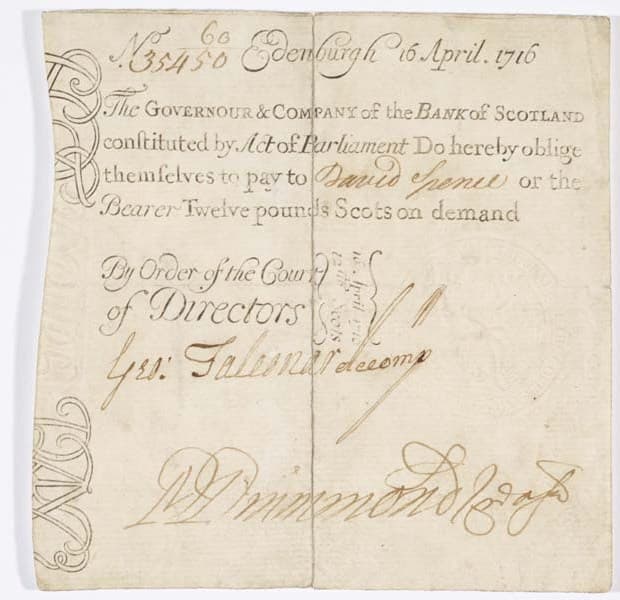 60
No. 35450 Edenburgh 16 April. 1716
The GOVERNOUR & COMPANY of the BANK of SCOTLAND
constituted by Act of Parliament Do hereby oblige
themselves to pay to David Spence or the
Bearer Twelve pounds Scots on demand
By Order of the Court
of Directors
16. April 1716
12 lib. Scots
Geo:
Drummond